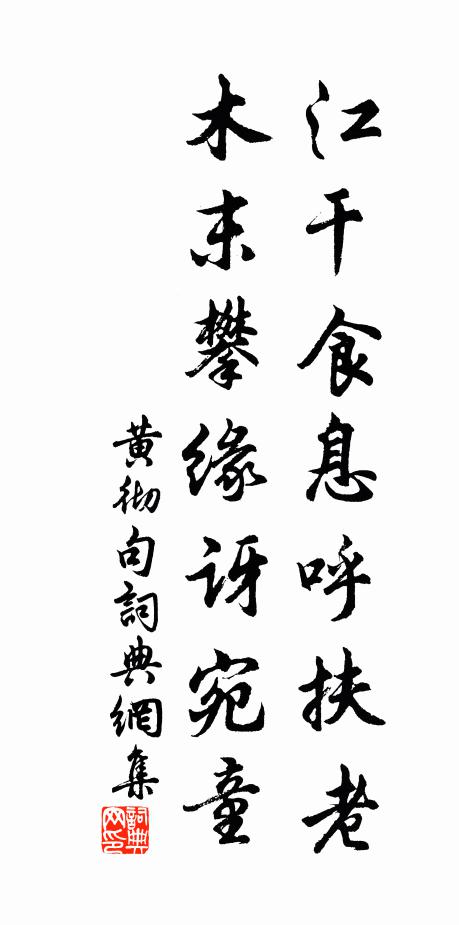 江干食息呼扶老
木末攀缘讶宛童
黄彻句詞典網集
詞典
网印